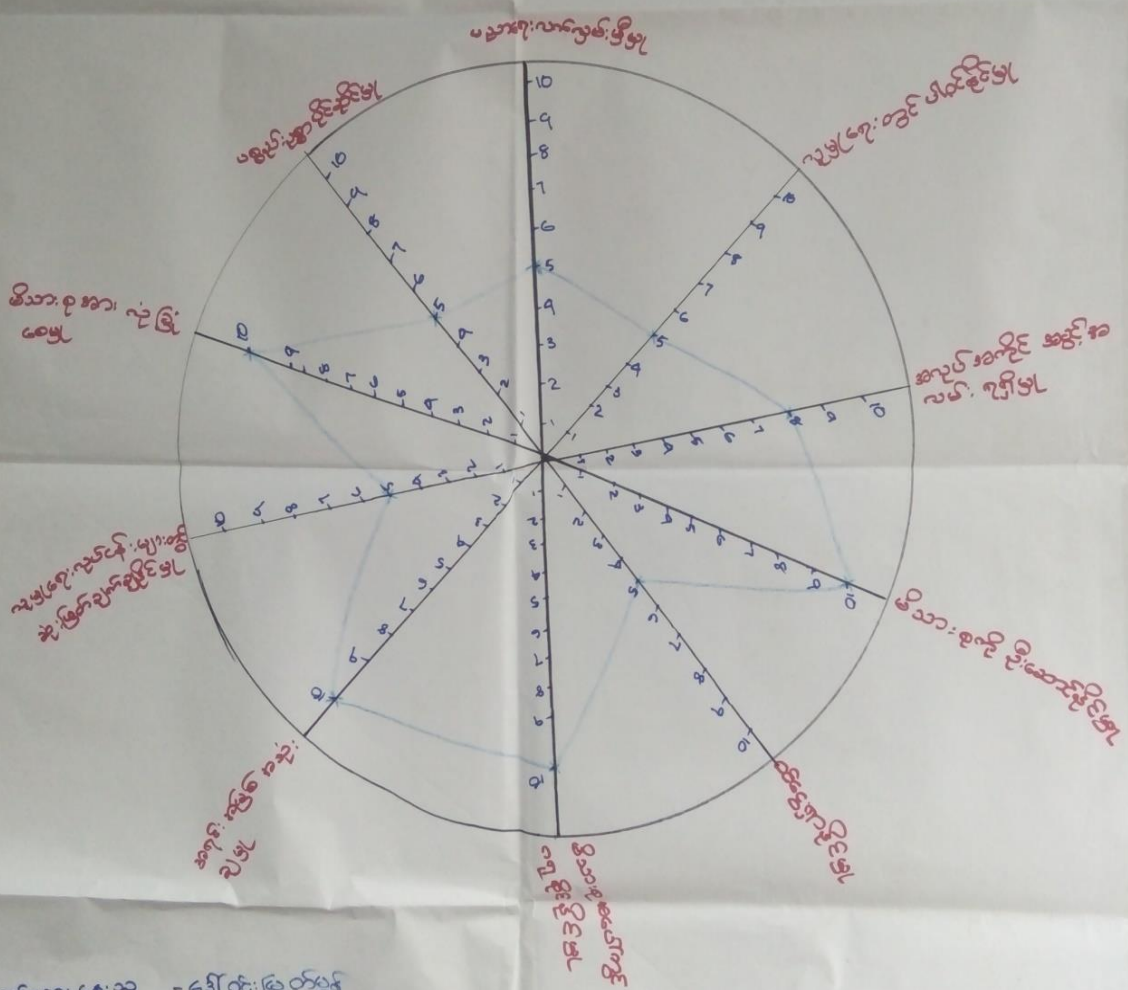 ပညာရေးလက်လှမ်းမှီမှု
လူမှုရေးတွင် ပါဝင်နိုင်မှု
အလုပ်အကိုင် အခွင့်အ
လမ်း ရရှိမှု
မိသားစုကို ဦးဆောင်နိုင်မှု
မိသားစုအပေါ်တွင်
အရင်းအမြစ် အသုံး
ပြုမှု
လူမှုရေးလုပ်ငန်းများတွင်
ဆုံးဖြတ်ချက်ချနိုင်မှု
မိသားစုအား လုံခြုံ
စေမှု
ပစ္စည်းဥစ္စာပိုင်ဆိုင်မှု
10
9
8
7
6
5
4
3
2
1
10
9
8
7
6
5
4
3
2
1
10
9
8
7
6
5
4
3
2
1
10
9
8
7
6
5
4
3
2
1
10
9
8
7
6
5
4
3
2
1
10
9
8
7
6
5
4
3
2
1
10
9
8
7
6
5
4
3
2
1
10
9
8
7
6
5
4
3
2
1
10
9
8
7
6
5
4
3
2
1
10
9
8
7
6
5
4
3
2
1